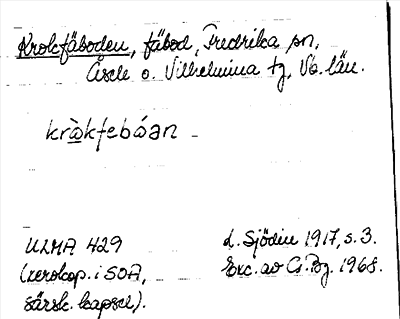 Krokfäboden, fäbod, Fredrika sn,
Åsele o. Vilhelmina tg, Vb. län.
krò̱kfebóan
ULMA 429
(xerokop. i SOA,
särsk. kapsel).
d. Sjödin 1917, s. 3.
Exc. av G. Bg. 1968.